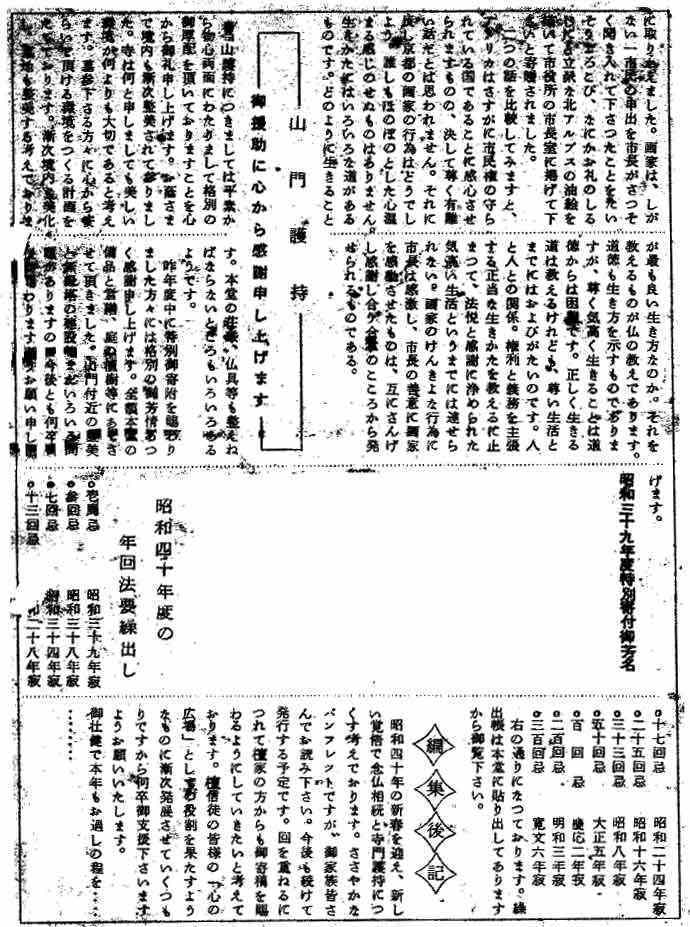 に取り　えました。画家は、しが
ない一市民の申出を市長がさつそ
く聞き入れて下さつたことをたい
そうよろこび、なにかお礼のしる
しにと立派な北アルプスの油絵を
描いて市役所の市長室に掲げて下
さいと寄贈されました。
二つの話を比較してみますと、
アメリカはさすがに市民権の守ら
れている国であることに感心させ
られますものの、決して尊く有難
い話だとは思われません。それに
反し京都の画家の行為はどうでし
よう。誰しもほのぼのとした心温
まる感じのせぬものはありません。
生きかたにはいろいろな道がある
ものです。どのように生きること
が最も良い生き方なのか。それを
教えるものが仏の教えであります。
道徳も生き方を示すものでありま
すが、尊く気高く生きることは道
徳からは困難です。正しく生きる
道は教えるけれども、尊い生活と
までにはおよびがたいのです。人
と人との関係。権利と義務を主張
する正当な生きかたを教えるに止
まつて、法悦と感謝に浄められた
気高い生活というまでには達せら
れない。画家のけんきよな行為に
市長は感激し、市長の善意に画家
を感激させたものは、互にさんげ
し感謝し合う合掌のこころから発
せられるものである。
山門護持
御援助に心から感謝申し上げます
当山維持につきましては平素か
ら物心両面にわたりまして格別の
御厚配を頂いておりますことを心
から御礼申し上げます。お蔭さま
で境内も漸次整美されて参りまし
た。寺は何と申しましても美しい
環境が何よりも大切であると考え
ます。墓参下さる方々に心から安
らいで頂ける環境をつくる計画を
たてております。漸次境内を美化
し、墓地も整美する考えでおりま
す。本堂の荘厳、仏具等も整えね
ばならないところもいろいろある
ようです。
昨年度中に特別御寄附を賜わり
ました方々には格別の御芳情あつ
く感謝申し上げます。全額本堂の
備品と営繕、庭の植樹等にあてさ
せて頂きました。山門付近の整美
げます。
昭和三十九年度特別寄付御芳名
昭和四十年度の
年回法要繰出し
○壱周忌　昭和三十九年寂
○参回忌　昭和三十八年寂
○七回忌　昭和三十四年寂
○十三回忌　二十八年寂
○十七回忌　昭和二十四年寂
○二十五回忌　昭和十六年寂
○三十三回忌　昭和八年寂
○五十回忌　大正五年寂
○百回忌　慶応二年寂
○二百回忌　明和三年寂
○三百回忌　寛文六年寂
右の通りになつております。繰
出帳は本堂に貼り出してあります
から御覧下さい。
編集後記
昭和四十年の新春を迎え、新し
い覚悟で念仏相続と寺門護持につ
くす考えでおります。ささやかな
パンフレツトですが、御家族皆さ
んでお読み下さい。今後も続けて
発行する予定です。回を重ねるに
つれて檀家の方からも御寄稿を賜
わるようにしていきたいと考えて
おります。檀信徒の皆様の「心の
広場」としての役割を果たすよう
なものに漸次発展させていくつも
りですから何卒御支援下さいます
ようお願いいたします。
御壮健で本年もお過しの程を……